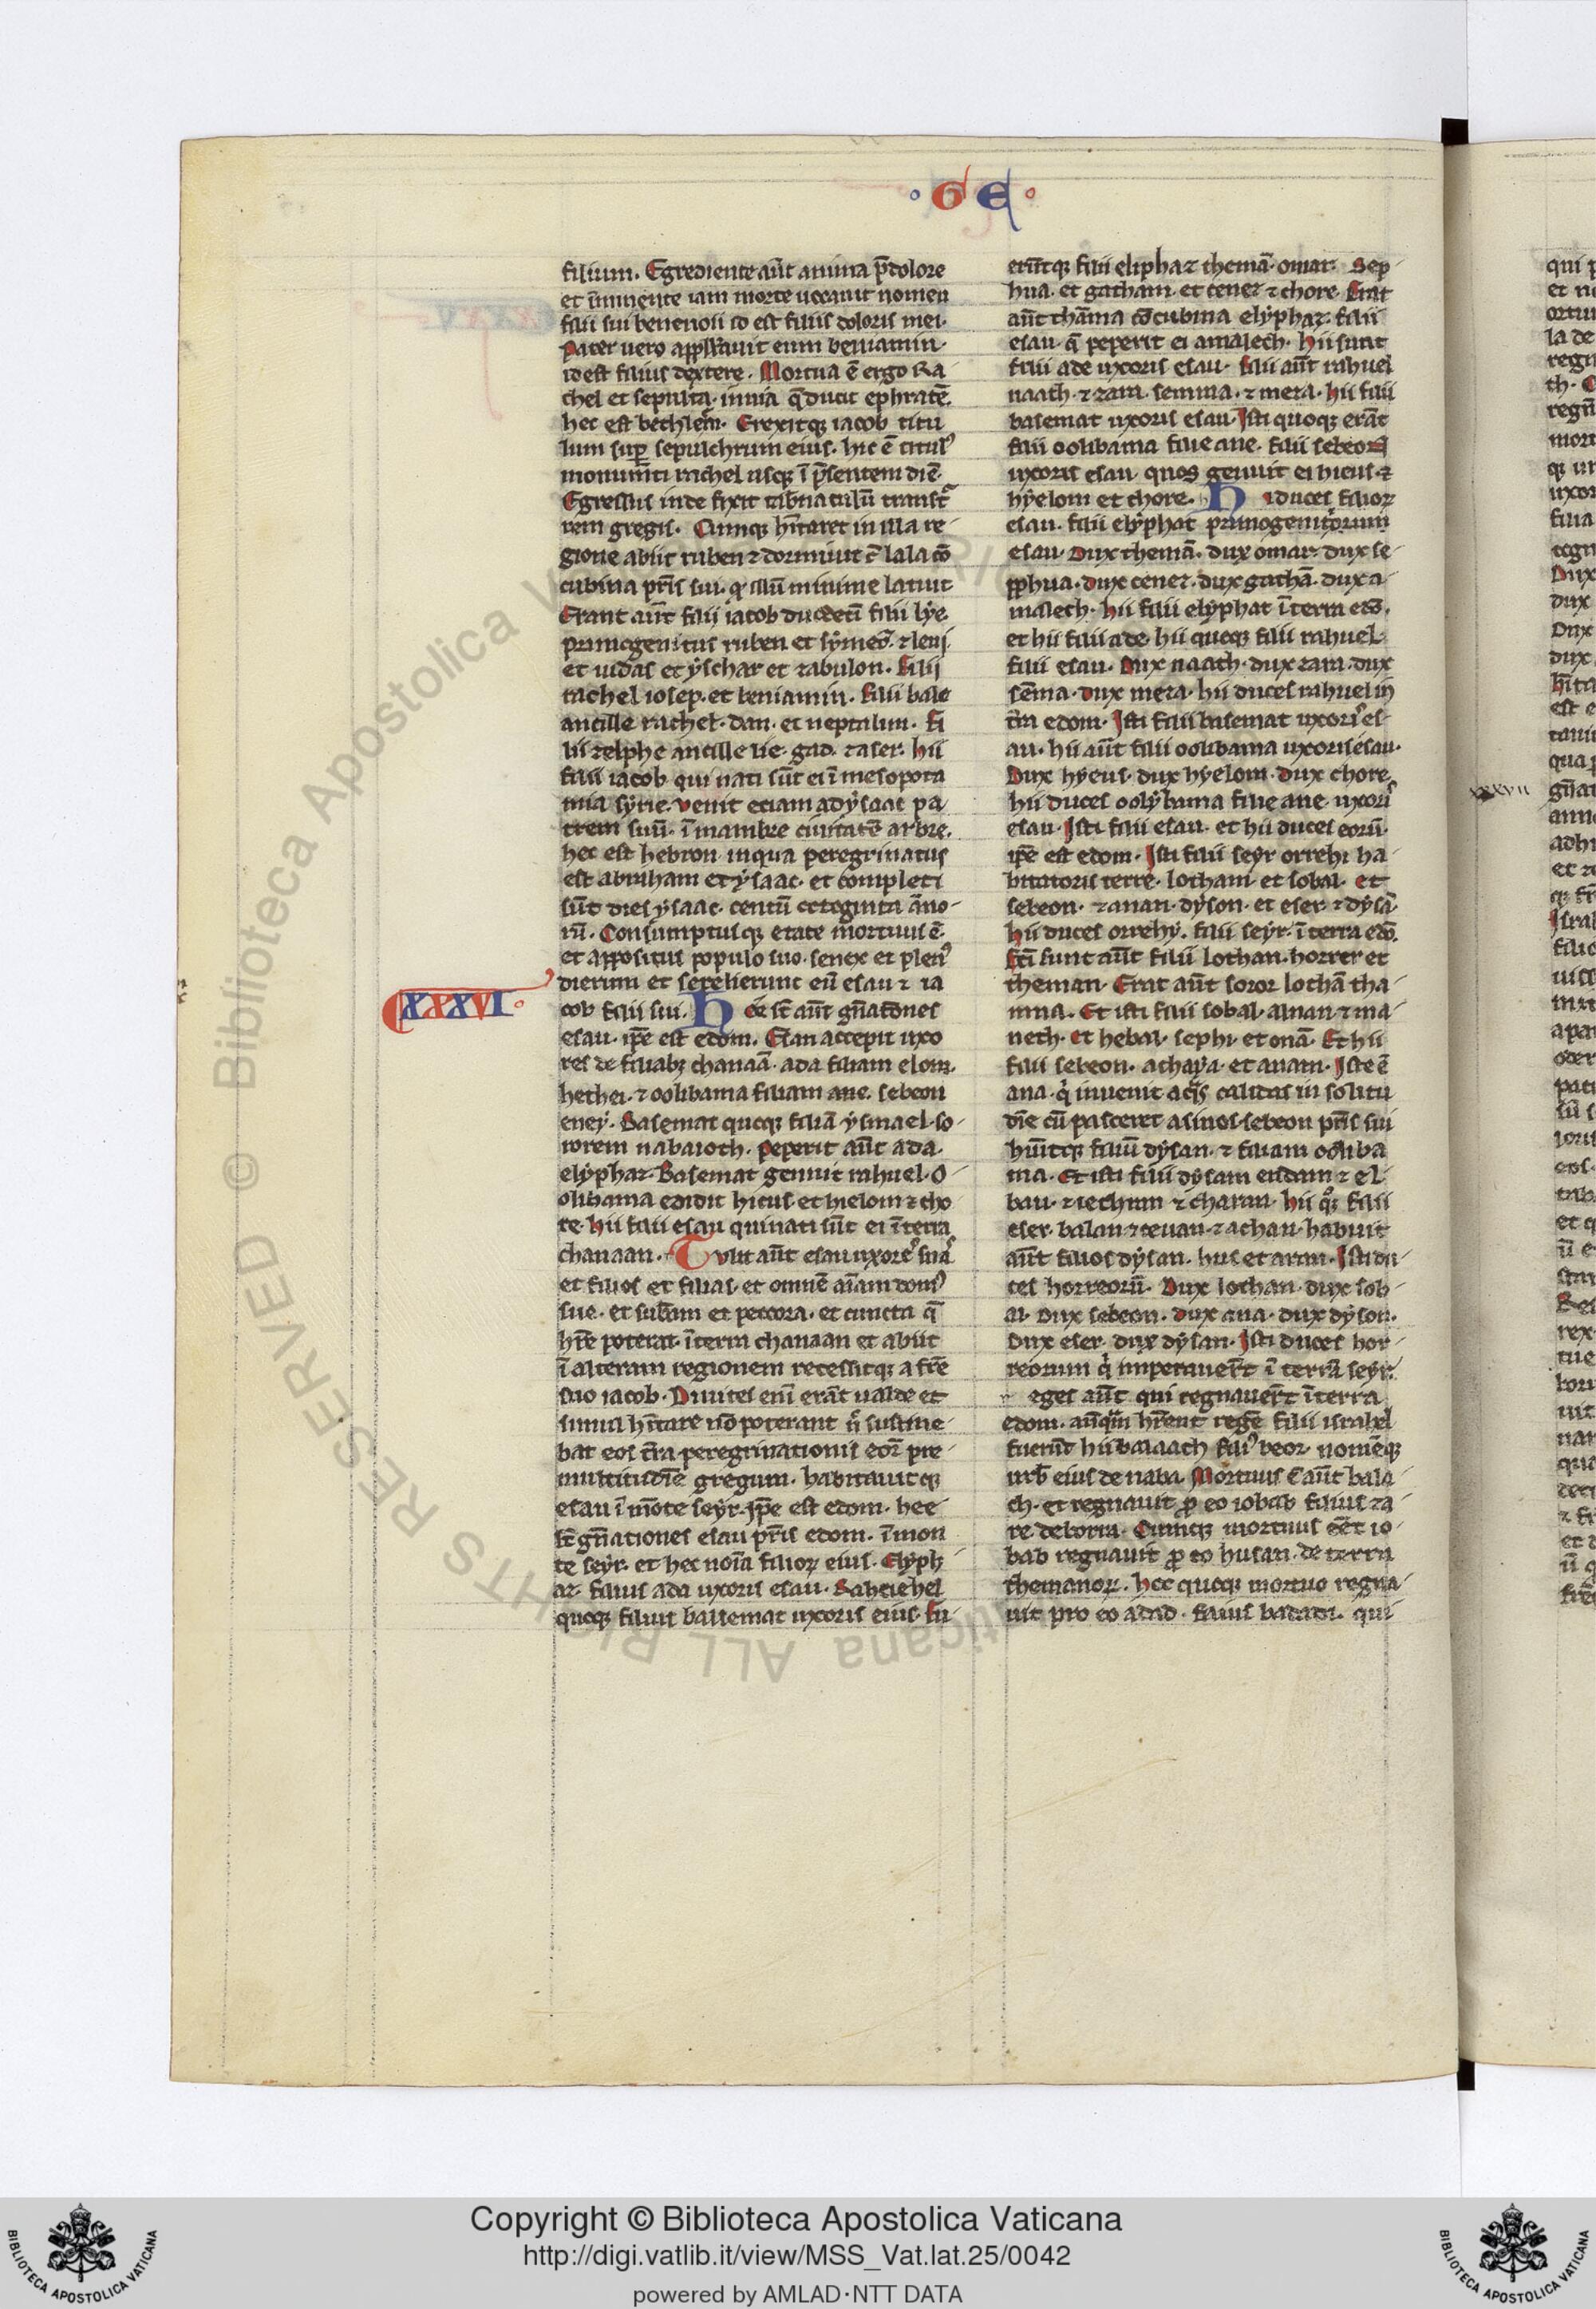 · G E ·
filium. Egrediente aūt anima p̄ dolore
et īminente iam morte uocauit nomen
filii sui benenoii id est filius doloris mei.
Pater uero appellauit eum beniamin.
id est filius dextere. Mortua ē ergo Ra
chel et sepulta. in uia q̄ ducit ephratē.
hec est bethleem. Erexitq; iacob titu
lum sup̄ sepulchrum eius. hic ē titul'
monumēti rachel usq; ī p̄sentem diē.
Egressus inde fixit tabnaculū transt
rem gregis. Cumq; hītaret in illa re-
gione abiit ruben ⁊ dormiuit c̄ bala cō
cubina pr̄is sui. qd illū minime latuit
Erant aūt filij iacob duodeci filii lye.
primogenitus ruben et symeō. ⁊ leui.
et iudas et yschar et zabulon. Filij
rachel iosep. et beniamin. Filii bale
ancille rachel. dan. et neptalim. Fi
lii zelphe ancille lie. gad. ⁊ aser. hii
filii iacob qui nati sūt ei ī mesopota
mia syrie. Venit eciam ad ysaac pa
trem suū. ī mambre ciuitatē arbee.
hec est hebron in qua peregrinatus
est abraham et ysaac. et completi
sūt dies ysaac. centū octoginta āno-
rū. Consumptusq; etate mortuus ē.
et appositus populo suo. senex et plen'
dierum et sepelierunt eū esau ⁊ ia
XXXVI·
cob filii sui. Hee st̄ aūt gn̄atōnes
esau. ip̄e est edom. Esau accepit uxo
res de filiab; chanaā. ada filiam elom.
hethei. ⁊ oolibama filiam ane. sebeon
eney. Basemat quoq; filiā ysmael. so-
rorem nabaioth. Peperit aūt ada.
elyphaz. Basemat genuit rahuel. O-
olibama edidit hieus. et hielom ⁊ cho
re. hii filii esau qui nati sūt ei ī terra
chanaan. Tulit aūt esau uxores suas
et filios et filias. et omnē aīam dom'
sue. et subam et peccora. et cuncta q̄
hr̄e poterat. ī terra chanaan et abiit
ī alteram regionem recessitq; a fr̄e
suo iacob. Diuites enī erāt ualde et
simul hītare nō poterant n̄ sustine-
bat eos tr̄a peregrinationis eor̄ pre-
multitudīe gregum. habitauitq;
esau ī mōte seyr. Ip̄e est edom. hee
st̄ gn̄ationes esau pr̄is edom. ī mon
te seyr. et hec noīa filioꝝ eius. Elyph-
az. filius ada uxoris esau. Rahuehel
quoq; filius bassemat uxoris eius. Fu-
erūtq; filii eliphaz themā. omar. Sep-
hua. et gatham. et cenez ⁊ chore. Erat
aūt thāma cōcubina elyphaz. filii
esau. q̄ peperit ei amalech. hii sunt
filii ade uxoris esau. Filii aūt rahuel
naath. ⁊ zara. semma. ⁊ meza. hii filii
basemat uxoris esau. Isti quoq; erāt
filii oolibama filie ane. filii sebeon
uxoris esau quos genuit ei hieus. ⁊
hyelom et chore. Hi duces filioꝝ
esau. filii elyphat primogenitorum
esau. Dux themā. dux omar. dux se-
pphua. dux cenez. dux gathā. dux a-
malech. hii filii elyphat ī terra edō.
et hii filii ade. hii quoq; filii rahuel.
filii esau. Dux naath. dux zara. dux
sēma. dux meza. hii duces rahuel in
tr̄a edom. Isti filii basemat uxoris es-
au. hii aūt filii oolibama uxoris esau.
Dux hyeus. dux hyelom. dux chore.
hii duces oolybama filie ane. uxoris
esau. Isti filii esau. et hii duces eorū.
ip̄e est edom. Isti filii seyr orrehi ha-
bitatoris terre. lotham. et sobal. et
sebeon. ⁊ anan. dyson. et eser. ⁊ dysā.
hii duces orrehy. filii seyr. ī terra edō.
Fc̄i sunt aūt filii lothan. horrer et
theman. Erat aūt soror lothā tha-
mna. Et isti filii sobal. alnan ⁊ ma-
neth. et hebal. sephi. et onā. Et hii
filii sebeon. achaya. et anam. Iste ē
ana. q̇ inuenit aqs calidas in solitu
dīe cū pasceret asinos sebeon pr̄is sui
huītq; filiū dysan. ⁊ filiam ooliba
ma. Et isti filii dysam endam ⁊ el-
ban. ⁊ iechum ⁊ charan. hii q°; filii
eser. balan ⁊ ceuan. ⁊ achan. habuit
aūt filios dysan. hus et aram. Isti du-
ces horreorū. Dux lothan. dux sob-
al. Dux sebeon. dux ana. dux dyson.
Dux eser. dux dysan. Isti duces hor-
reorum q̇ imperauerūt ī terra seyr.
eges aūt qui regnauer̄t ī terra
edom. an̄q̄m hr̄ent regē filii israhel
fuerūt hii balaach fili' beor. nomēq;
urb' eius denaba. Mortuus ē aūt bala-
ch. et regnauit p̄ eo iobab filius za-
re de bosra. Cumq; mortuus eēt io-
bab regnauit p̄ eo husan. de terra
themanoꝝ. hoc quoq; mortuo regna-
uit pro eo adad. filius badadi. qui
xxxvii
Copyright © Biblioteca Apostolica Vaticana
http://digi.vatlib.it/view/MSS_Vat.lat.25/0042
powered by AMLAD·NTT DATA